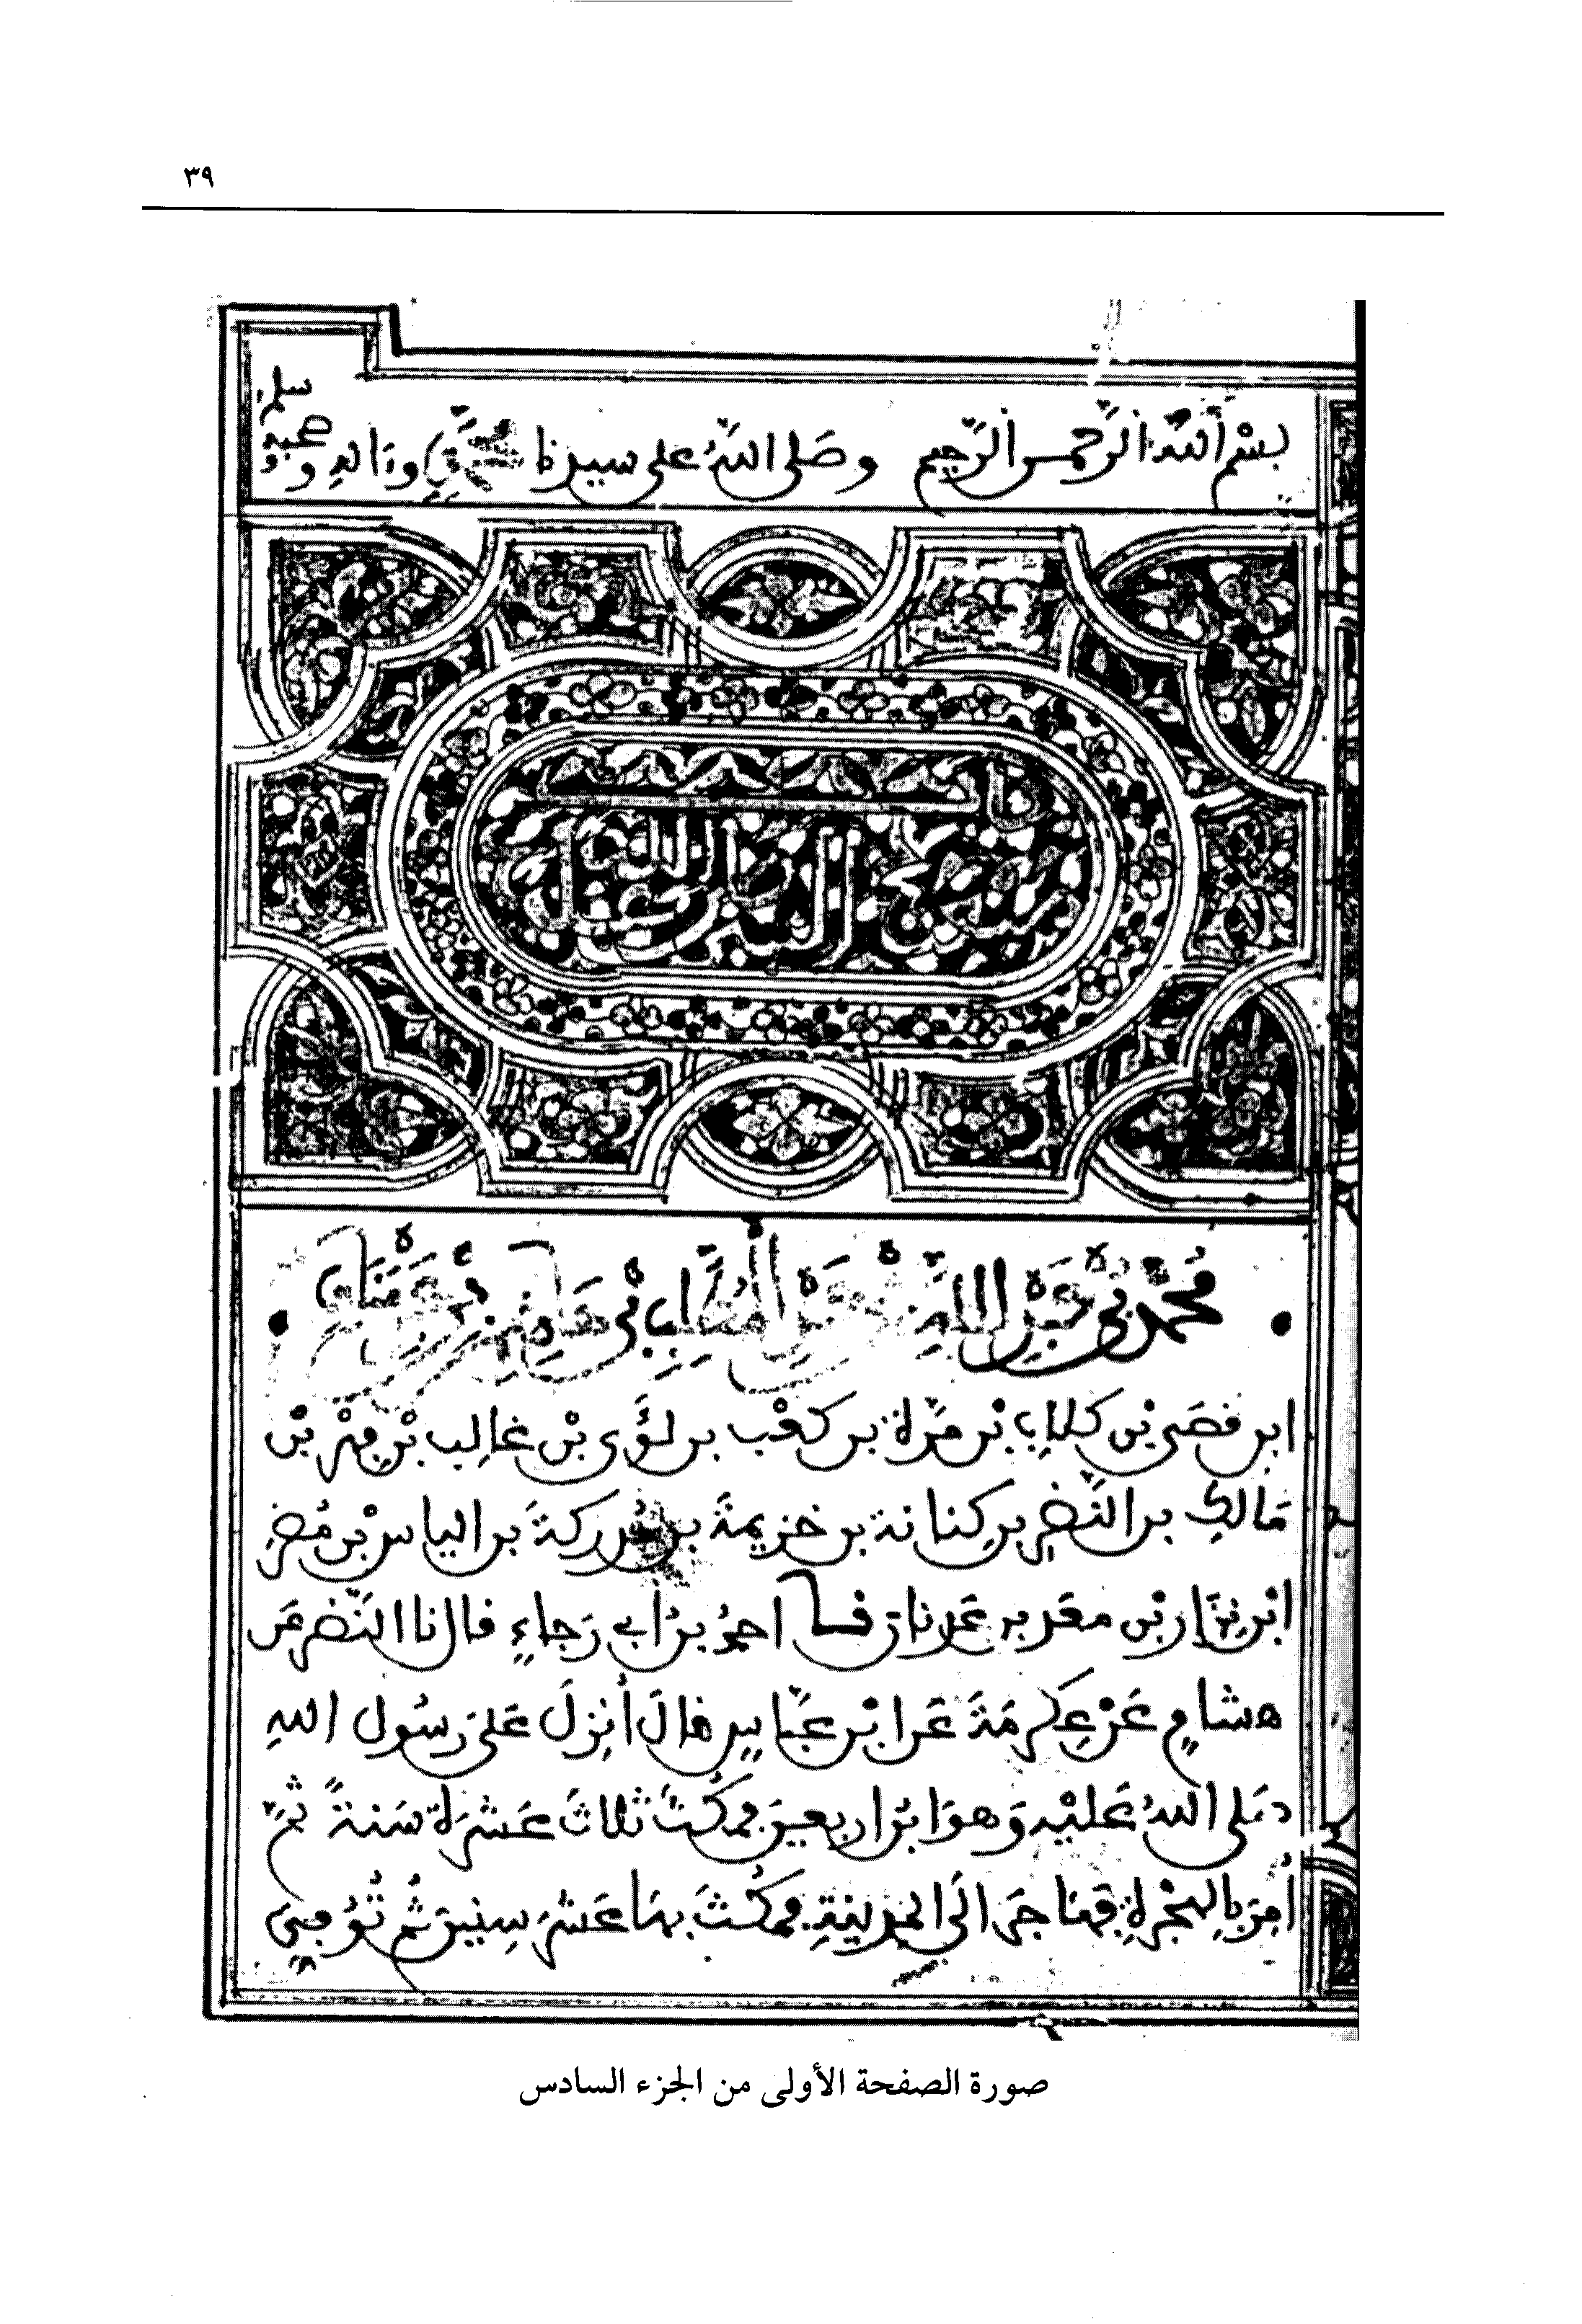 ٣٩
بسم الله الرحمن الرحيم وصلى الله على سيدنا محمد وءاله وصحبه وسلم
باب مبعث النبي صلى الله
محمد بن عبد الله بن عبد المطلب بن هاشم بن عبد مناف
ابن قصي بن كلاب بن مرة بن كعب بن لؤي بن غالب بن فهر بن
مالك بن النضر بن كنانة بن خزيمة بن مدركة بن الياس بن مضر
ابن نزار بن معد بن عدنان احمد بن أبي رجاء قال نا النضر عن
هشام عن عكرمة عن ابن عباس قال أنزل على رسول الله
صلى الله عليه وهو ابن اربعين فمكث ثلاث عشرة سنة ثم
أمر بالهجرة فهاجر إلى المدينة فمكث بها عشر سنين ثم توفي
صورة الصفحة الأولى من الجزء السادس